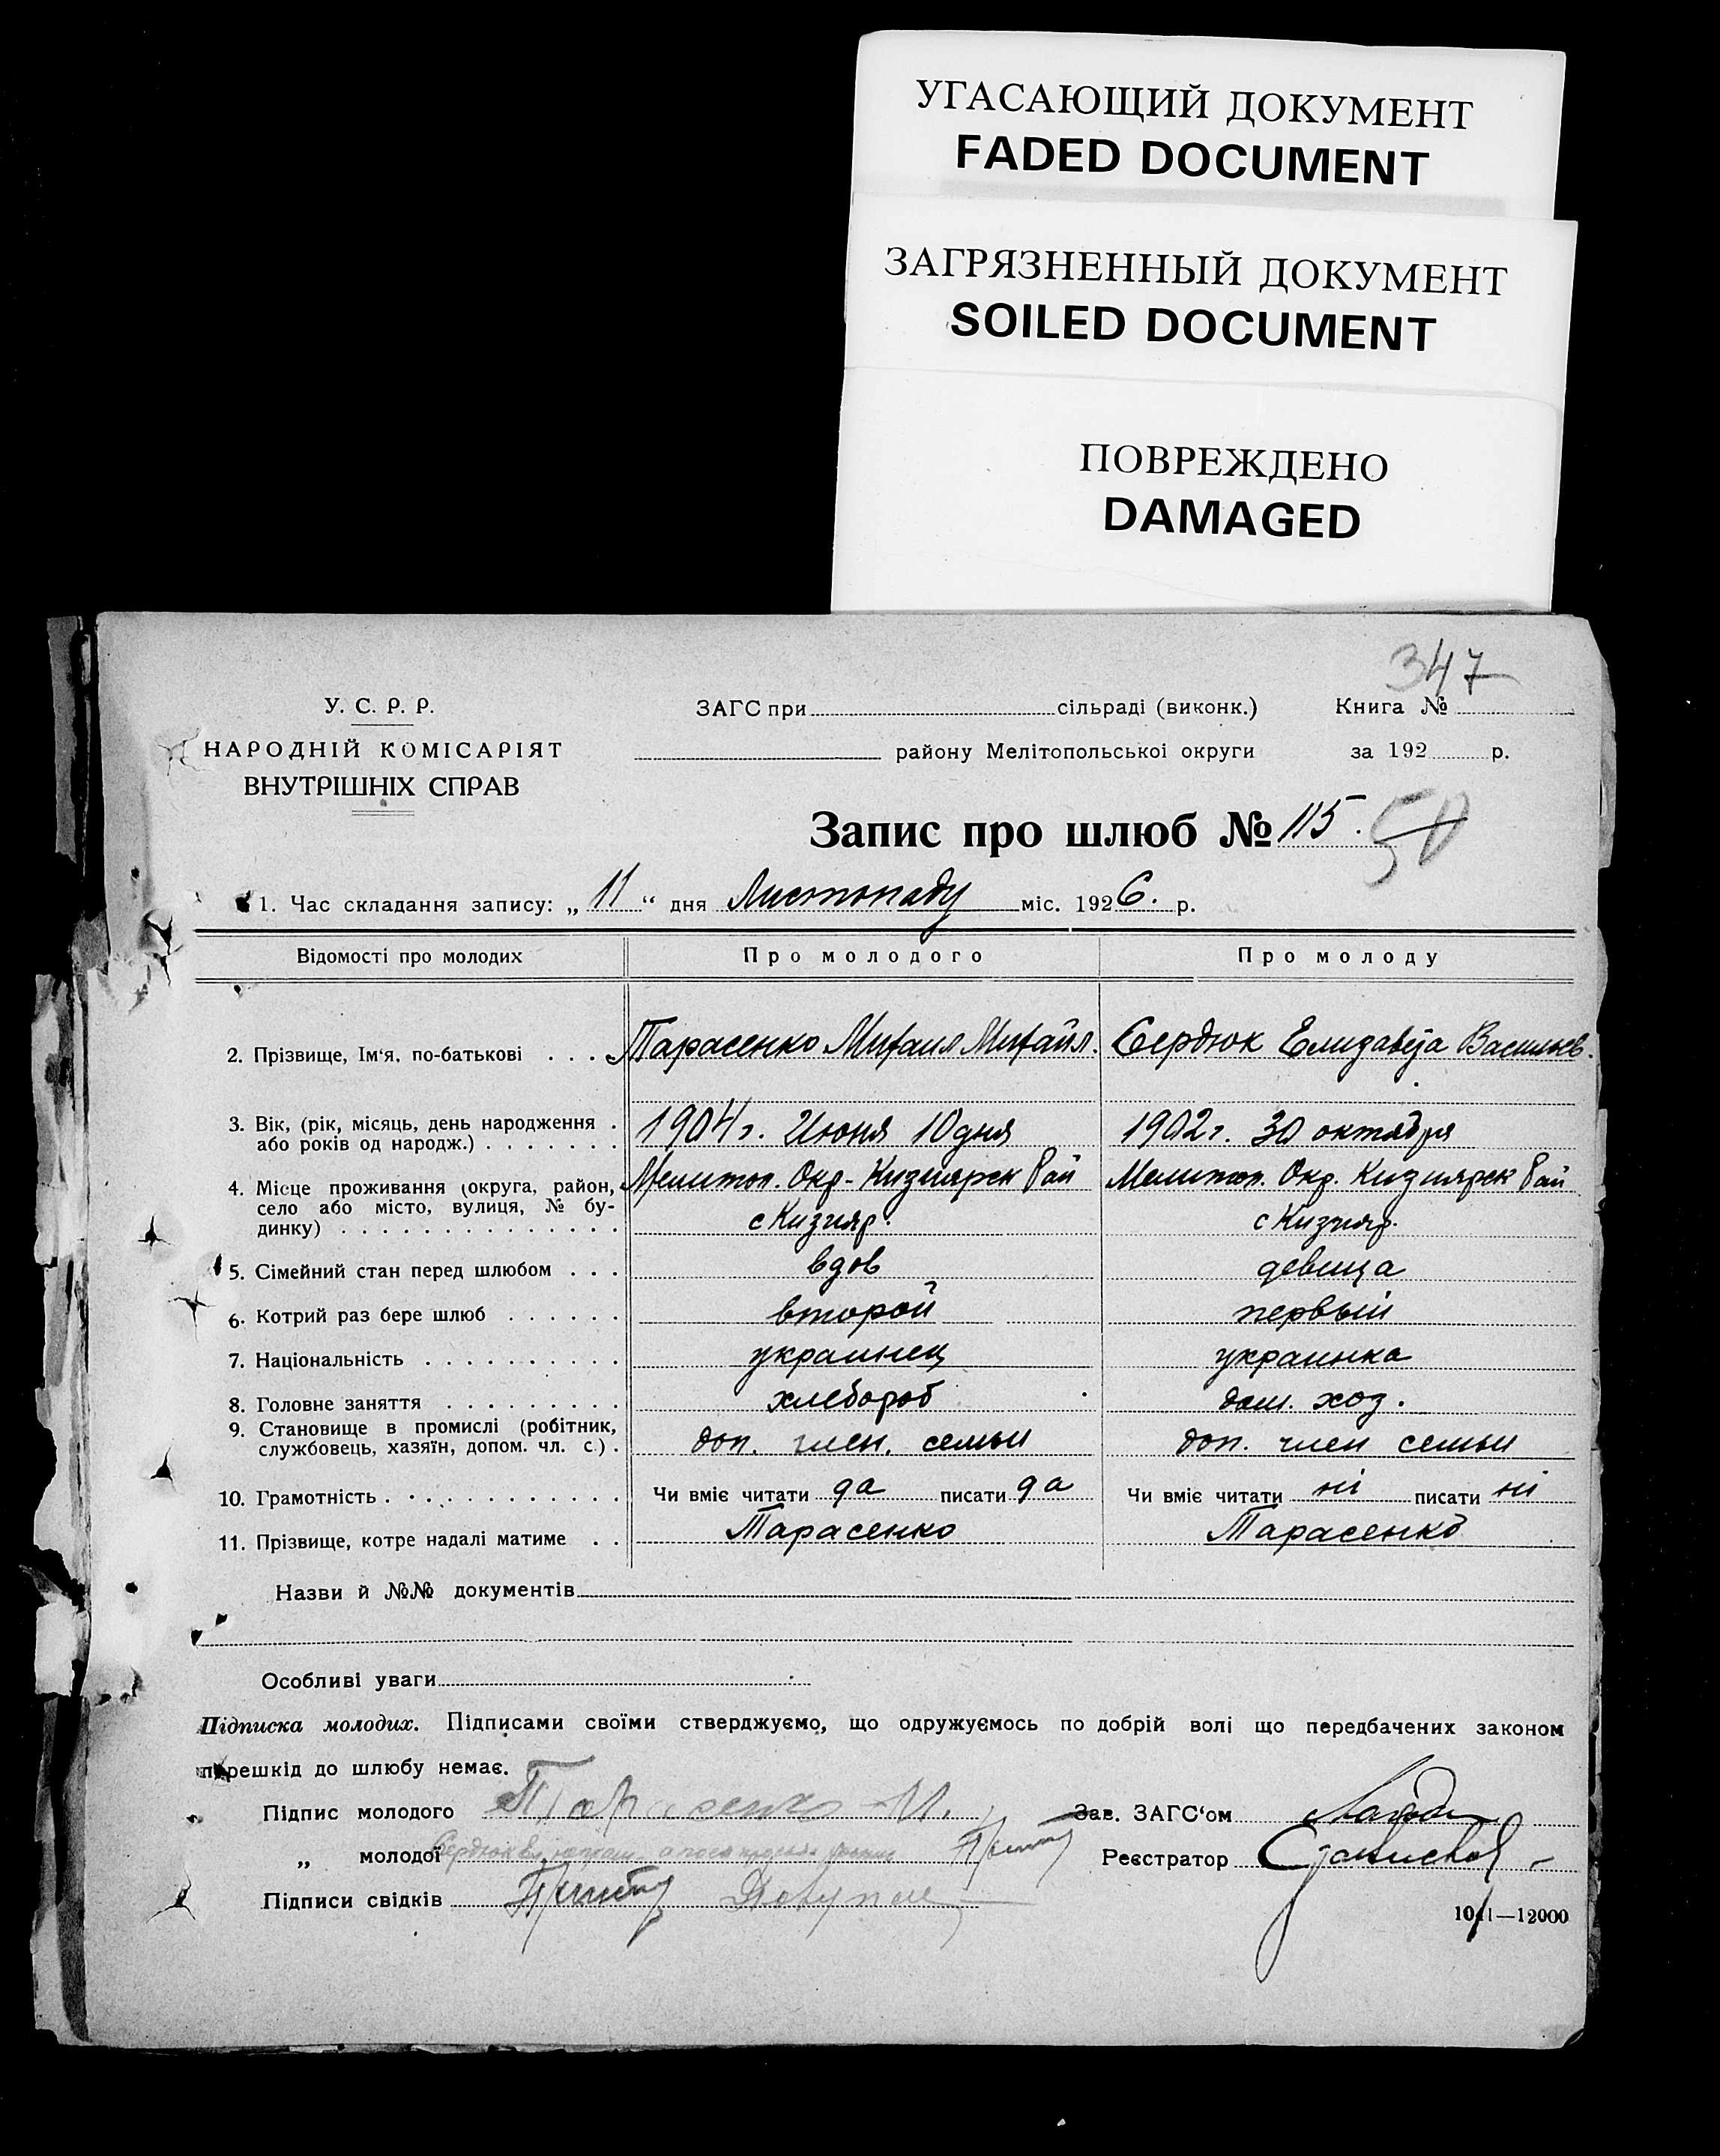 УГАСАЮЩИЙ ДОКУМЕНТ
FADED DOCUMENT
ЗАГРЯЗНЕННЫЙ ДОКУМЕНТ
SOILED DOCUMENT
ПОВРЕЖДЕНО
DAMAGED
347
У. С. Р. Р.
НАРОДНІЙ КОМІСАРІЯТ
ВНУТРІШНІХ СПРАВ
ЗАГС при сільраді (виконк.) Книга №
району Мелітопольської округи за 192 р.
Запис про шлюб № 115. 50
1. Час складання запису: „ 11 “ дня Листопаду міс. 1926. р.
Відомості про молодих Про молодого Про молоду
2. Прізвище, Ім‘я, по-батькові . . . Тарасенко Михаил Михайл. Сердюк Елизавета Васильев.
3. Вік, (рік, місяць, день народження . 1904 г. Июня 10 дня 1902 г. 30 октября
або років од народж.) . . . . . . .
4. Місце проживання (округа, район, Мелитоп. Окр. - Кизиярск Рай Мелитоп. Окр. Кизиярск Рай
село або місто, вулиця, № бу- с Кизияр. с Кизияр.
динку) . . . . . . . . . . . . . .
5. Сімейний стан перед шлюбом . . . вдов девица
6. Котрий раз бере шлюб . . . . . . второй первый
7. Національність . . . . . . . . . . украинец украинка
8. Головне заняття . . . . . . . . . хлебороб дом. хоз.
9. Становище в промислі (робітник,
службовець, хазяїн, допом. чл. с.) . доп. член. семьи доп. член семьи
10. Грамотність . . . . . . . . . . . . Чи вміє читати да писати да Чи вміє читати ні писати ні
11. Прізвище, котре надалі матиме . . Тарасенко Тарасенко
Назви й №№ документів
Особливі уваги
Підписка молодих. Підписами своїми стверджуємо, що одружуємось по добрій волі що передбачених законом
перешкід до шлюбу немає.
Підпис молодого Тарасенко М. Зав. ЗАГС‘ом
„ молодої Сердюк Реєстратор
Підписи свідків
1041—12000